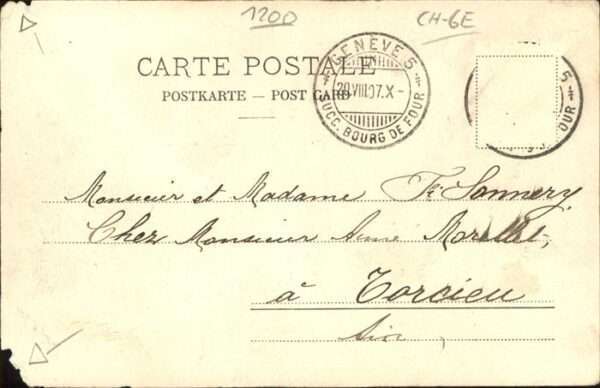 1200
CH-GE
CARTE POSTALE
POSTKARTE — POST CARD
GENÈVE 5
20.VIII.07.X-
SUCC. BOURG DE FOUR
5
OUR
Monsieur et Madame Fr. Sonnery
Chez Monsieur Aimé Morellet,
à Torcieu
Ain